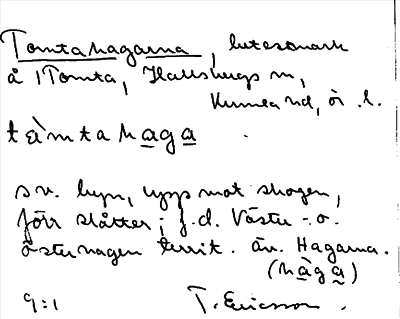 Tomtahagarna, betesmark
å 1 Tomta, Hallsbergs sn,
Kumla hd, Ör. l.
tàmtahaga
sv. byn, upp mot skogen,
förr slåtter; f.d. Västra- o.
Österhagen territ. äv. Hagarna.
(hàga)
9:1 T. Ericsson.